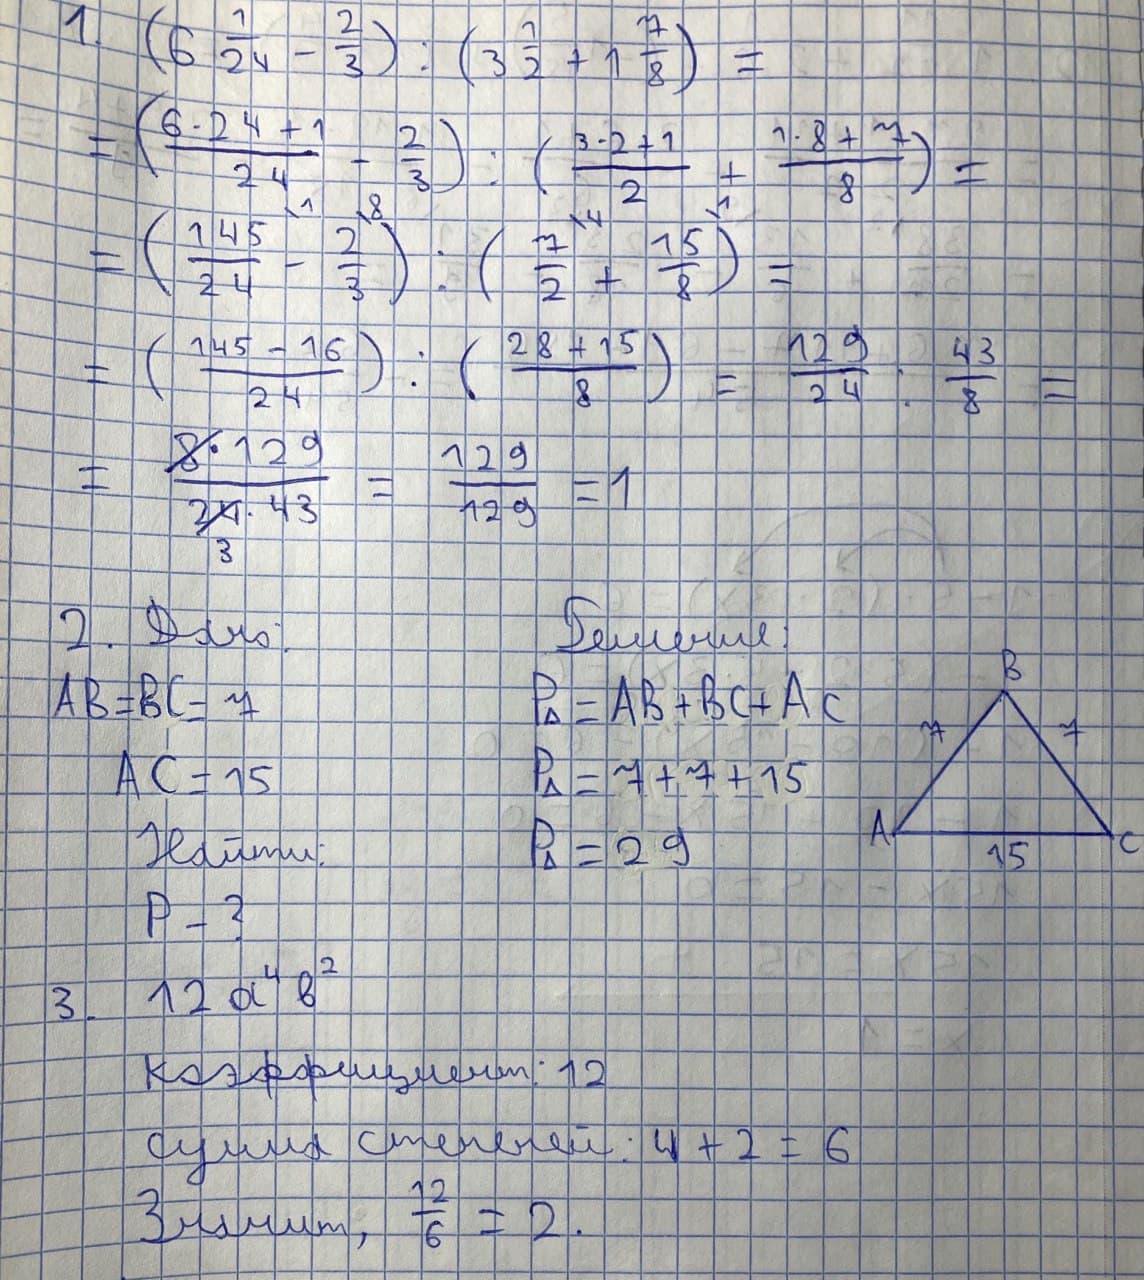 1. (6 1/24 - 2/3) : (3 1/2 + 1 7/8) =
= ((6·24+1)/24 - 2/3) : ((3·2+1)/2 + (1·8+7)/8) =
= (145/24 \1 - 2/3 \8) : (7/2 \4 + 15/8 \1) =
= ((145-16)/24) : ((28+15)/8) = 129/24 : 43/8 =
= (8·129)/(24·43) = 129/129 = 1
3
2. Дано:
AB=BC=7
AC=15
Найти:
P-?
Решение:
P△=AB+BC+AC
P△=7+7+15
P△=29
B
7 7
A C
15
3. 12a⁴b²
Коэффициент: 12
Сумма степеней: 4+2=6
Значит, 12/6 = 2.